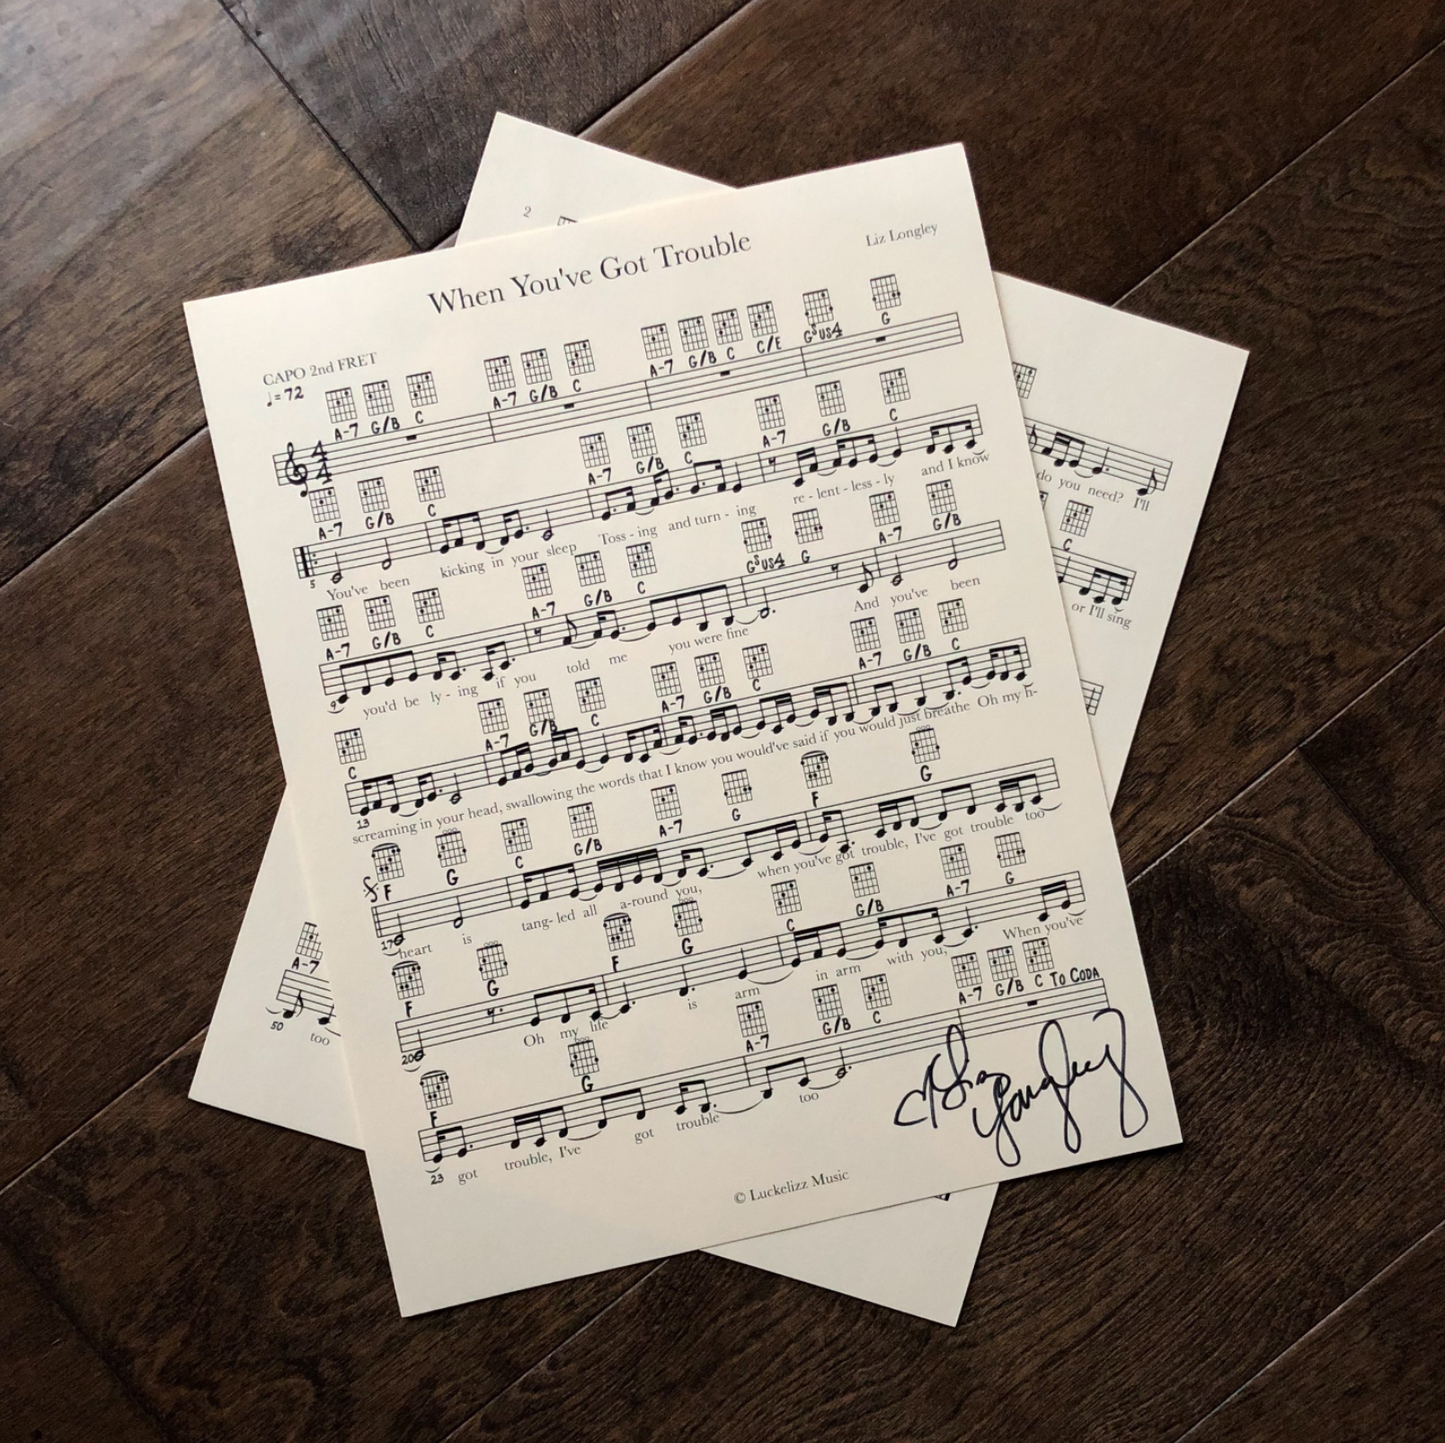 2
When You've Got Trouble
Liz Longley
CAPO 2nd FRET
♩=72
A-7 G/B C A-7 G/B C A-7 G/B C C/E Gsus4 G
4
4
A-7 G/B C A-7 G/B C A-7 G/B C
5
You've been kicking in your sleep Toss - ing and turn - ing re - lent - less - ly and I know
A-7 G/B C A-7 G/B C Gsus4 G A-7 G/B
9
you'd be ly - ing if you told me you were fine And you've been
C A-7 G/B C A-7 G/B C A-7 G/B C
13
screaming in your head, swallowing the words that I know you would've said if you would just breathe Oh my h-
F G C G/B A-7 G F G
17
heart is tang- led all a-round you, when you've got trouble, I've got trouble too
F G F G C G/B A-7 G
20
Oh my life is arm in arm with you, When you've
F G A-7 G/B C A-7 G/B C TO CODA
23
got trouble, I've got trouble too
Liz Longley
© Luckelizz Music
do you need? I'll
C
or I'll sing
A-7
50
too